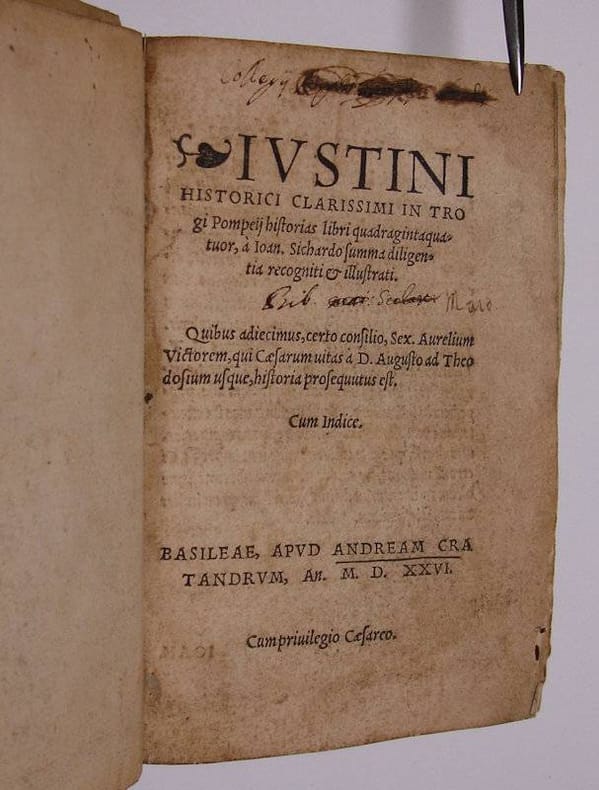 Collegij
IVSTINI
HISTORICI CLARISSIMI IN TRO
gi Pompeij historias libri quadragintaqua-
tuor, à Ioan. Sichardo summa diligen-
tia recogniti & illustrati.
Bib. Maro
Quibus adiecimus, certo consilio, Sex. Aurelium
Victorem, qui Cæsarum uitas à D. Augusto ad Theo
dosium usque, historia prosequutus est.
Cum Indice.
BASILEAE, APVD ANDREAM CRA
TANDRVM, An. M. D. XXVI.
Cum priuilegio Cæsareo.